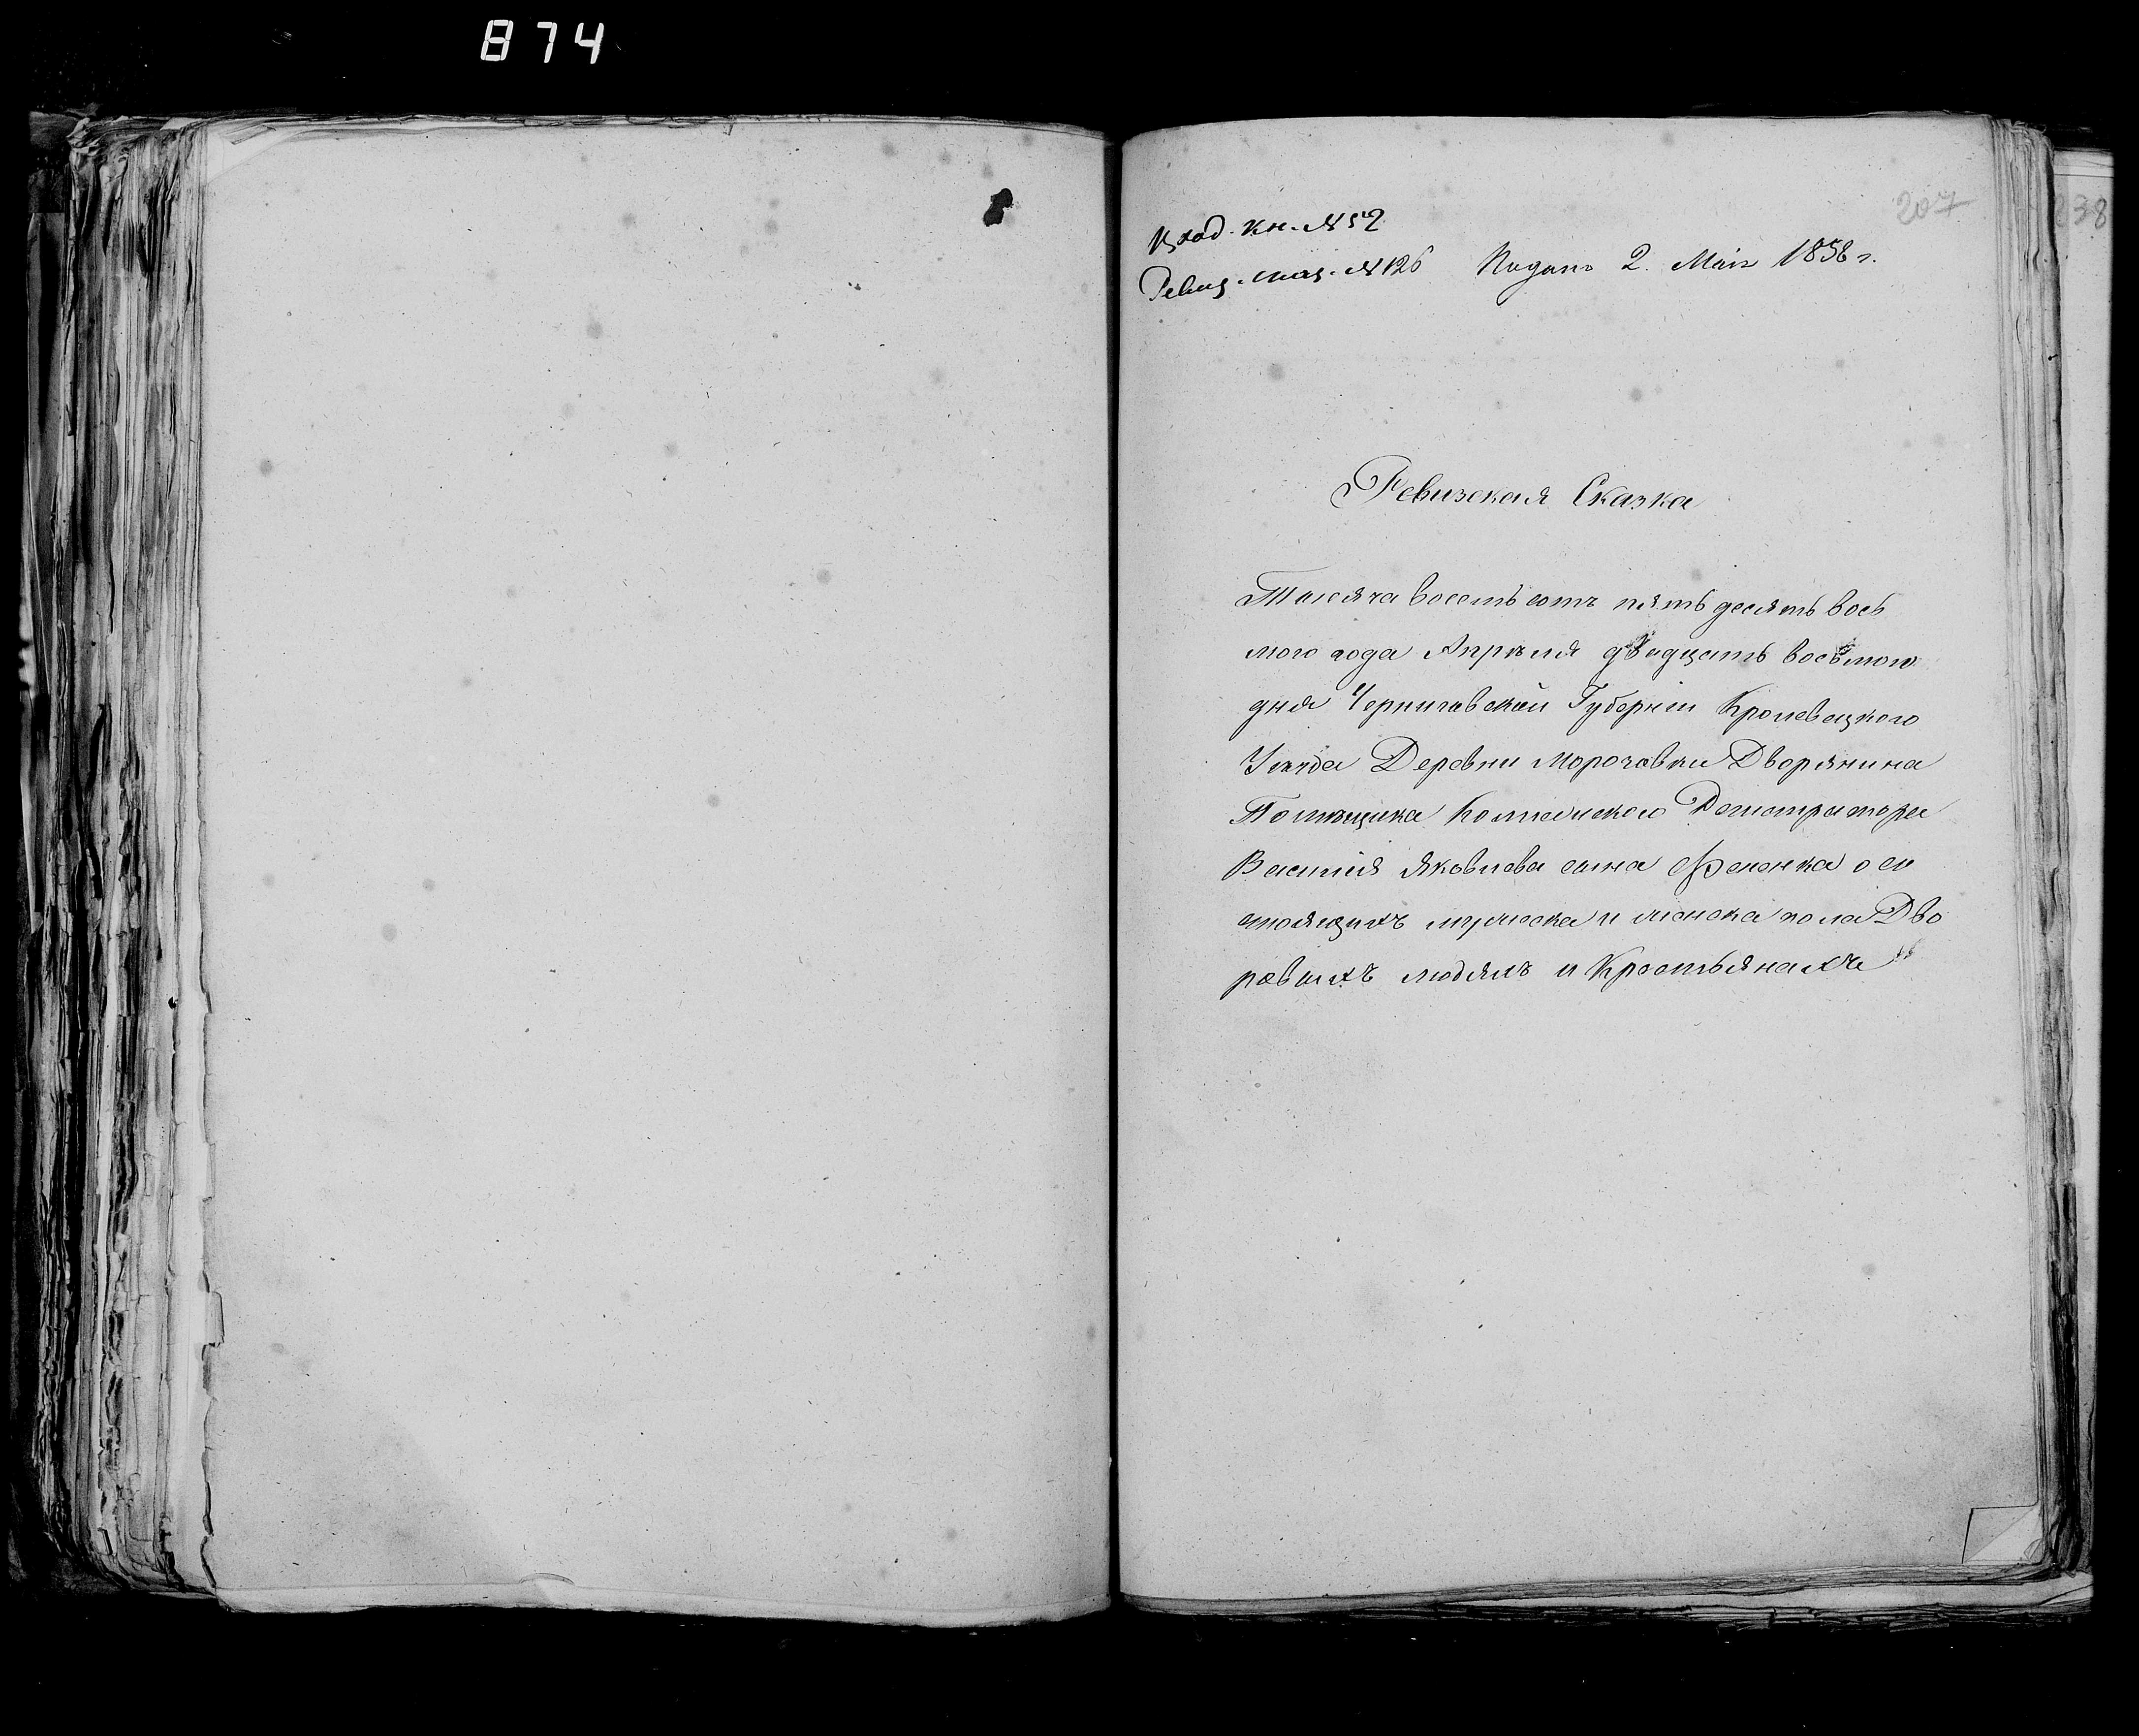 874
207
238
Вход. кн. № 52
Ревиз. сказ. № 126 Подана 2. Маія 1858 г.
Ревизская Сказка
Тысяча восемьсотъ пятьдесятъ вось
мого года Апрѣля двадцать восьмого
дня Черниговской Губерніи Кролевецкого
Уѣзда Деревни Морочовки Дворянина
Помѣщика Коллежского Регистратора
Василія Яковлева сына о со
стоящихъ мужеска и женска пола Дво
ровыхъ людяхъ и Крестьянахъ